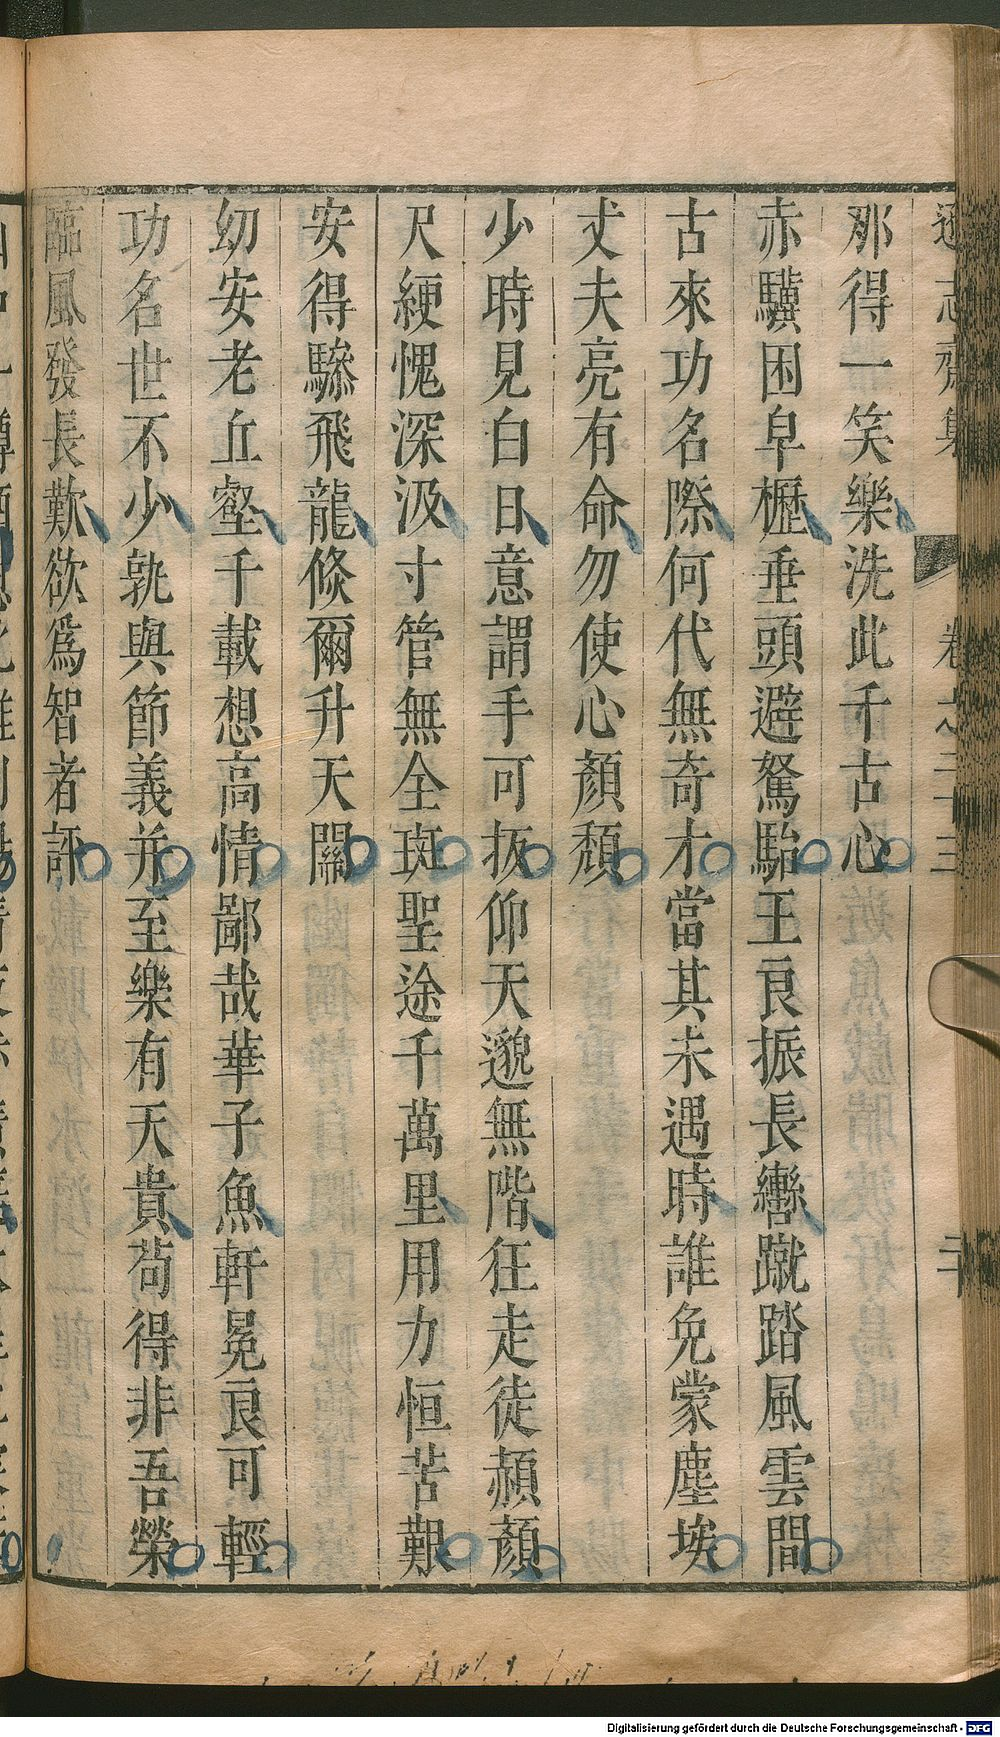 遜志齋集 卷之二十三 二十
那得一笑樂洗此千古心
赤驥困皁櫪垂頭避駑駘王良振長轡蹴踏風雲間
古來功名際何代無奇才當其未遇時誰免蒙塵埃
丈夫亮有命勿使心顏頽
少時見白日意謂手可扳仰天邈無階狂走徒頳顏
尺綆愧深汲寸管無全斑聖途千萬里用力恒苦艱
安得驂飛龍倐爾升天關
幼安老丘壑千載想高情鄙哉華子魚軒冕良可輕
功名世不少孰與節義并至樂有天貴茍得非吾榮
臨風發長歎欲爲智者評
Digitalisierung gefördert durch die Deutsche Forschungsgemeinschaft - DFG